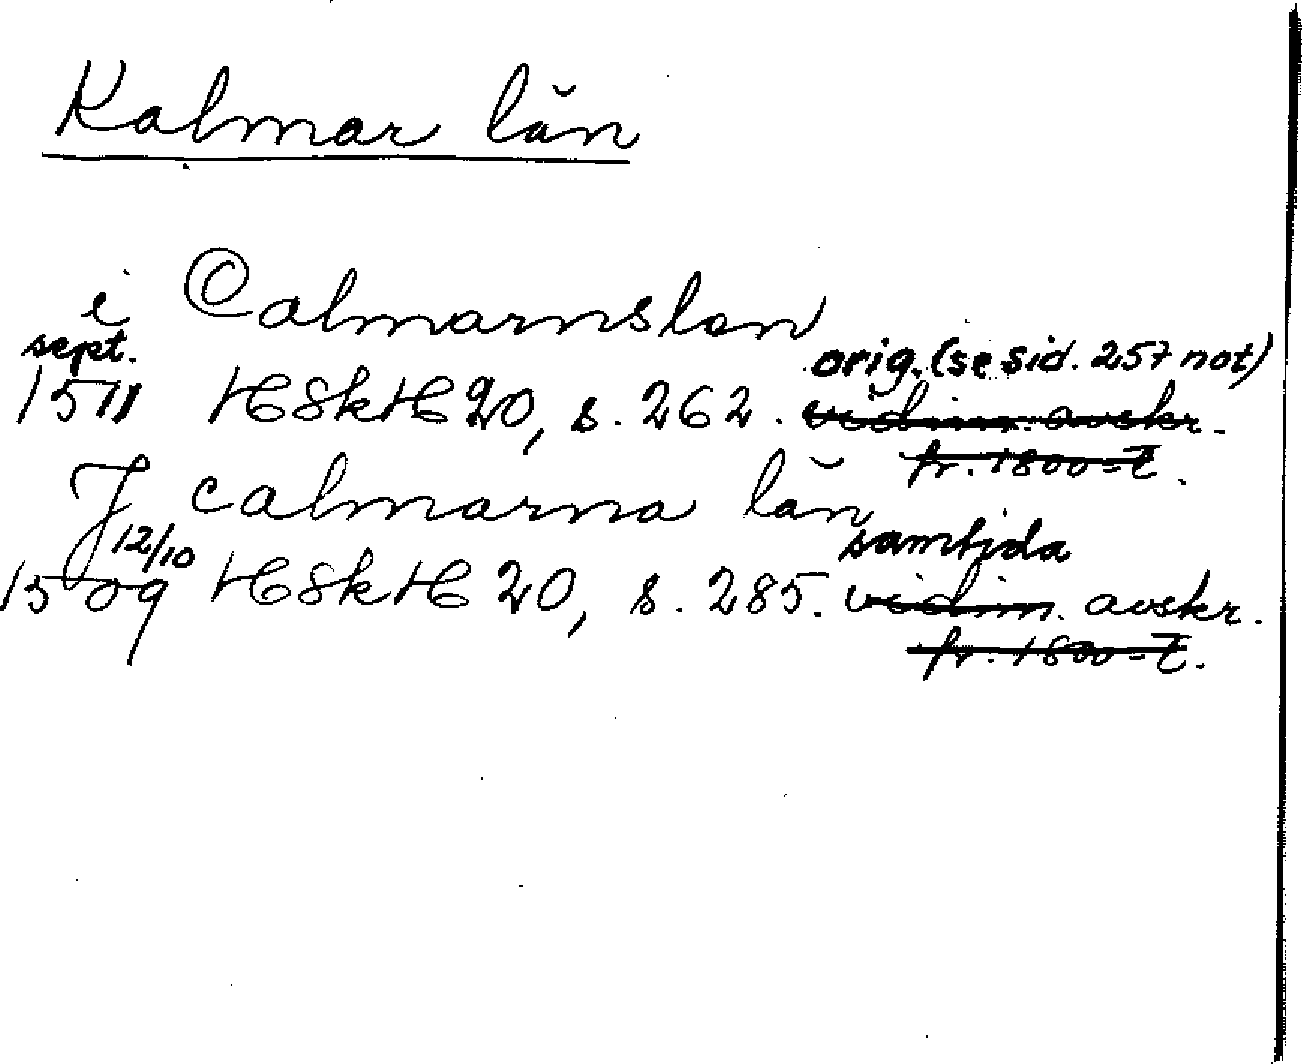 Kalmar län
i Calmarnslan
sept.
orig. (se sid. 257 not)
1511 HSkH 20, s. 262. vidim. avskr.
fr. 1800-t.
J calmarna län
12/10
samtida
1509 HSkH 20, s. 285. vidim. avskr.
fr. 1800-t.